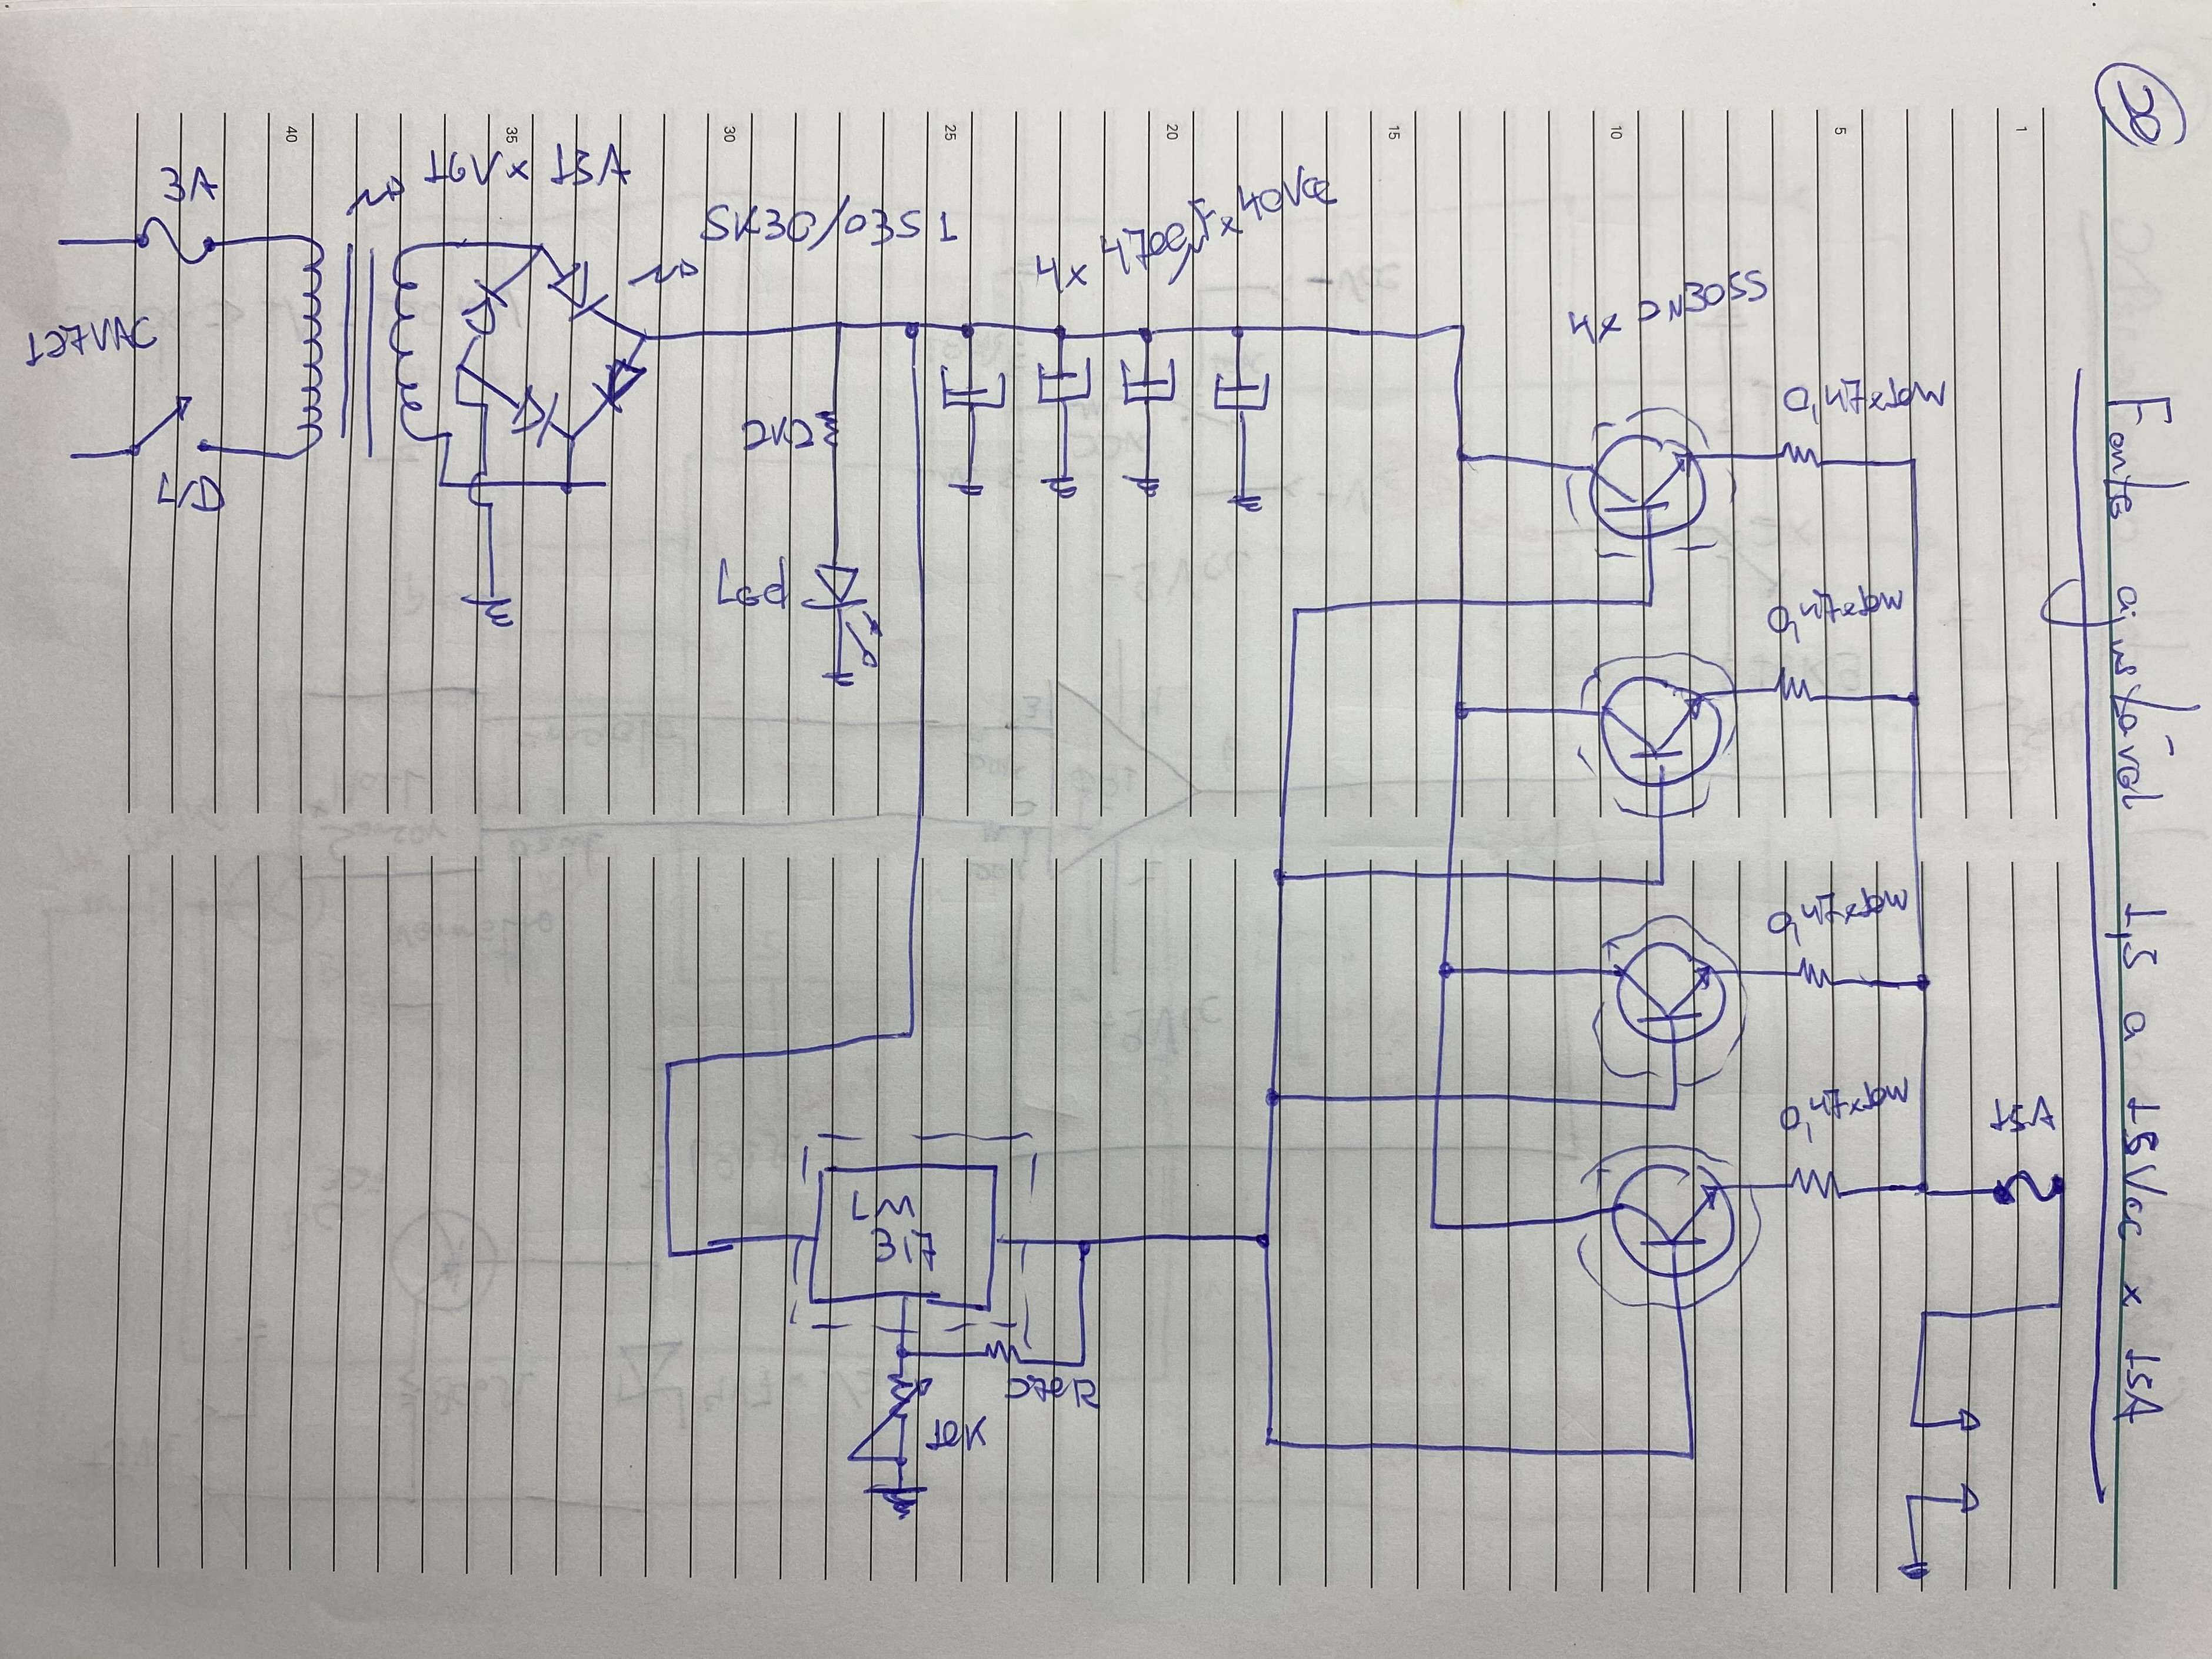 20
Fonte ajustável 1,5 a 15Vcc x 15A
3A
127VAC
L/D
16V x 15A
SK30/03S1
2K2
Led
4x 4700µF x 40Vcc
4x 2N3055
0,47x10W
0,47x10W
0,47x10W
0,47x10W
15A
LM
317
270R
10K
40
35
30
25
20
15
10
5
1